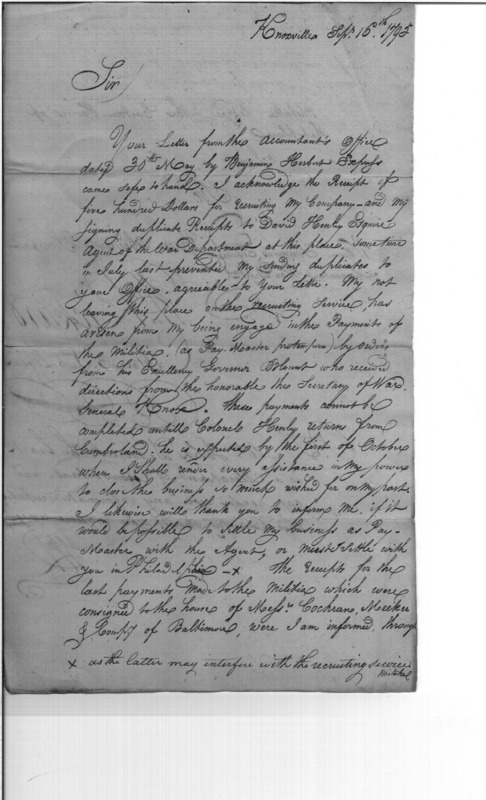 Knoxville Sept. 16th. 1795
Sir
Your Letter from the Accountant's Office
dated 30th May by Benjamin Herbert Express
came safe to hand. I acknowledge the Receipt of
five hundred Dollars for recruiting My Company - and My
signing duplicate Receipts to David Henley Esquire
Agent of the War Department at this place sometime
in July last prevented My sending duplicates to
your Office agreeable to Your Letter. My not
leaving this place on the recruiting Service, has
arisen from My being engage in the Payments of
the Militia (as Pay-Master protem,) by orders
from his Excellency Governor Blount who received
directions from the honorable the Secretary of War
General Knox. These payments cannot be
completed untill Colonel Henley returns from
Cumberland. he is expected by the first of October
when I shall render every assistance in My power
to close the business so much wished for on My part.
I likewise will thank you to inform Me, if it
would be possible to Settle My business as Pay-
Master with the Agent, or must I settle with
you in Philadelphia - x The receipts for the
last payments Made to the Militia which were
consigned to the house of Messrs. Cochran, Meeker
& Compy. of Balltimore, were I am informed, through
x as the latter may interfere with the recruiting service
mistake